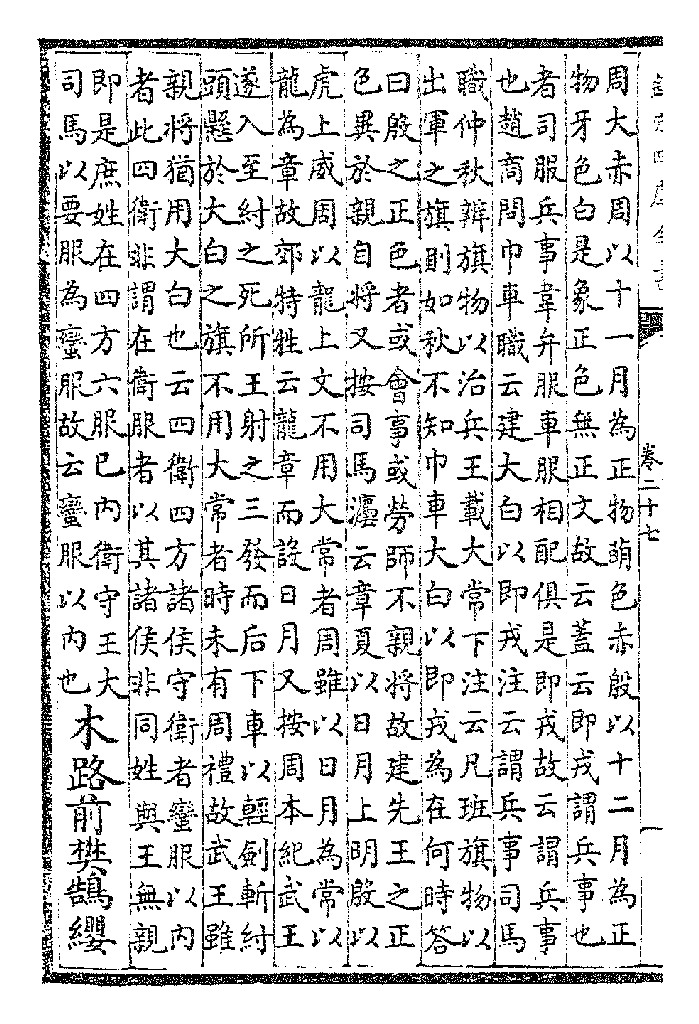 欽定四庫全書
卷二十七
一
周大赤周以十一月為正物萌色赤殷以十二月為正
物牙色白是象正色無正文故云蓋云即戎謂兵事也
者司服兵事韋弁服車服相配俱是即戎故云謂兵事
也趙商問巾車職云建大白以即戎注云謂兵事司馬
職仲秋辨旗物以治兵王載大常下注云凡班旗物以
出軍之旗則如秋不知巾車大白以即戎為在何時答
曰殷之正色者或會事或勞師不親將故建先王之正
色異於親自將又按司馬灋云章夏以日月上明殷以
虎上威周以龍上文不用大常者周雖以日月為常以
龍為章故郊特牲云龍章而設日月又按周本紀武王
遂入至紂之死所王射之三發而后下車以輕劍斬紂
頭懸於大白之旗不用大常者時未有周禮故武王雖
親將猶用大白也云四衛四方諸侯守衛者蠻服以內
者此四衛非謂在衛服者以其諸侯非同姓與王無親
即是庶姓在四方六服已內衛守王大
司馬以要服為蠻服故云蠻服以內也
木路前樊鵠纓